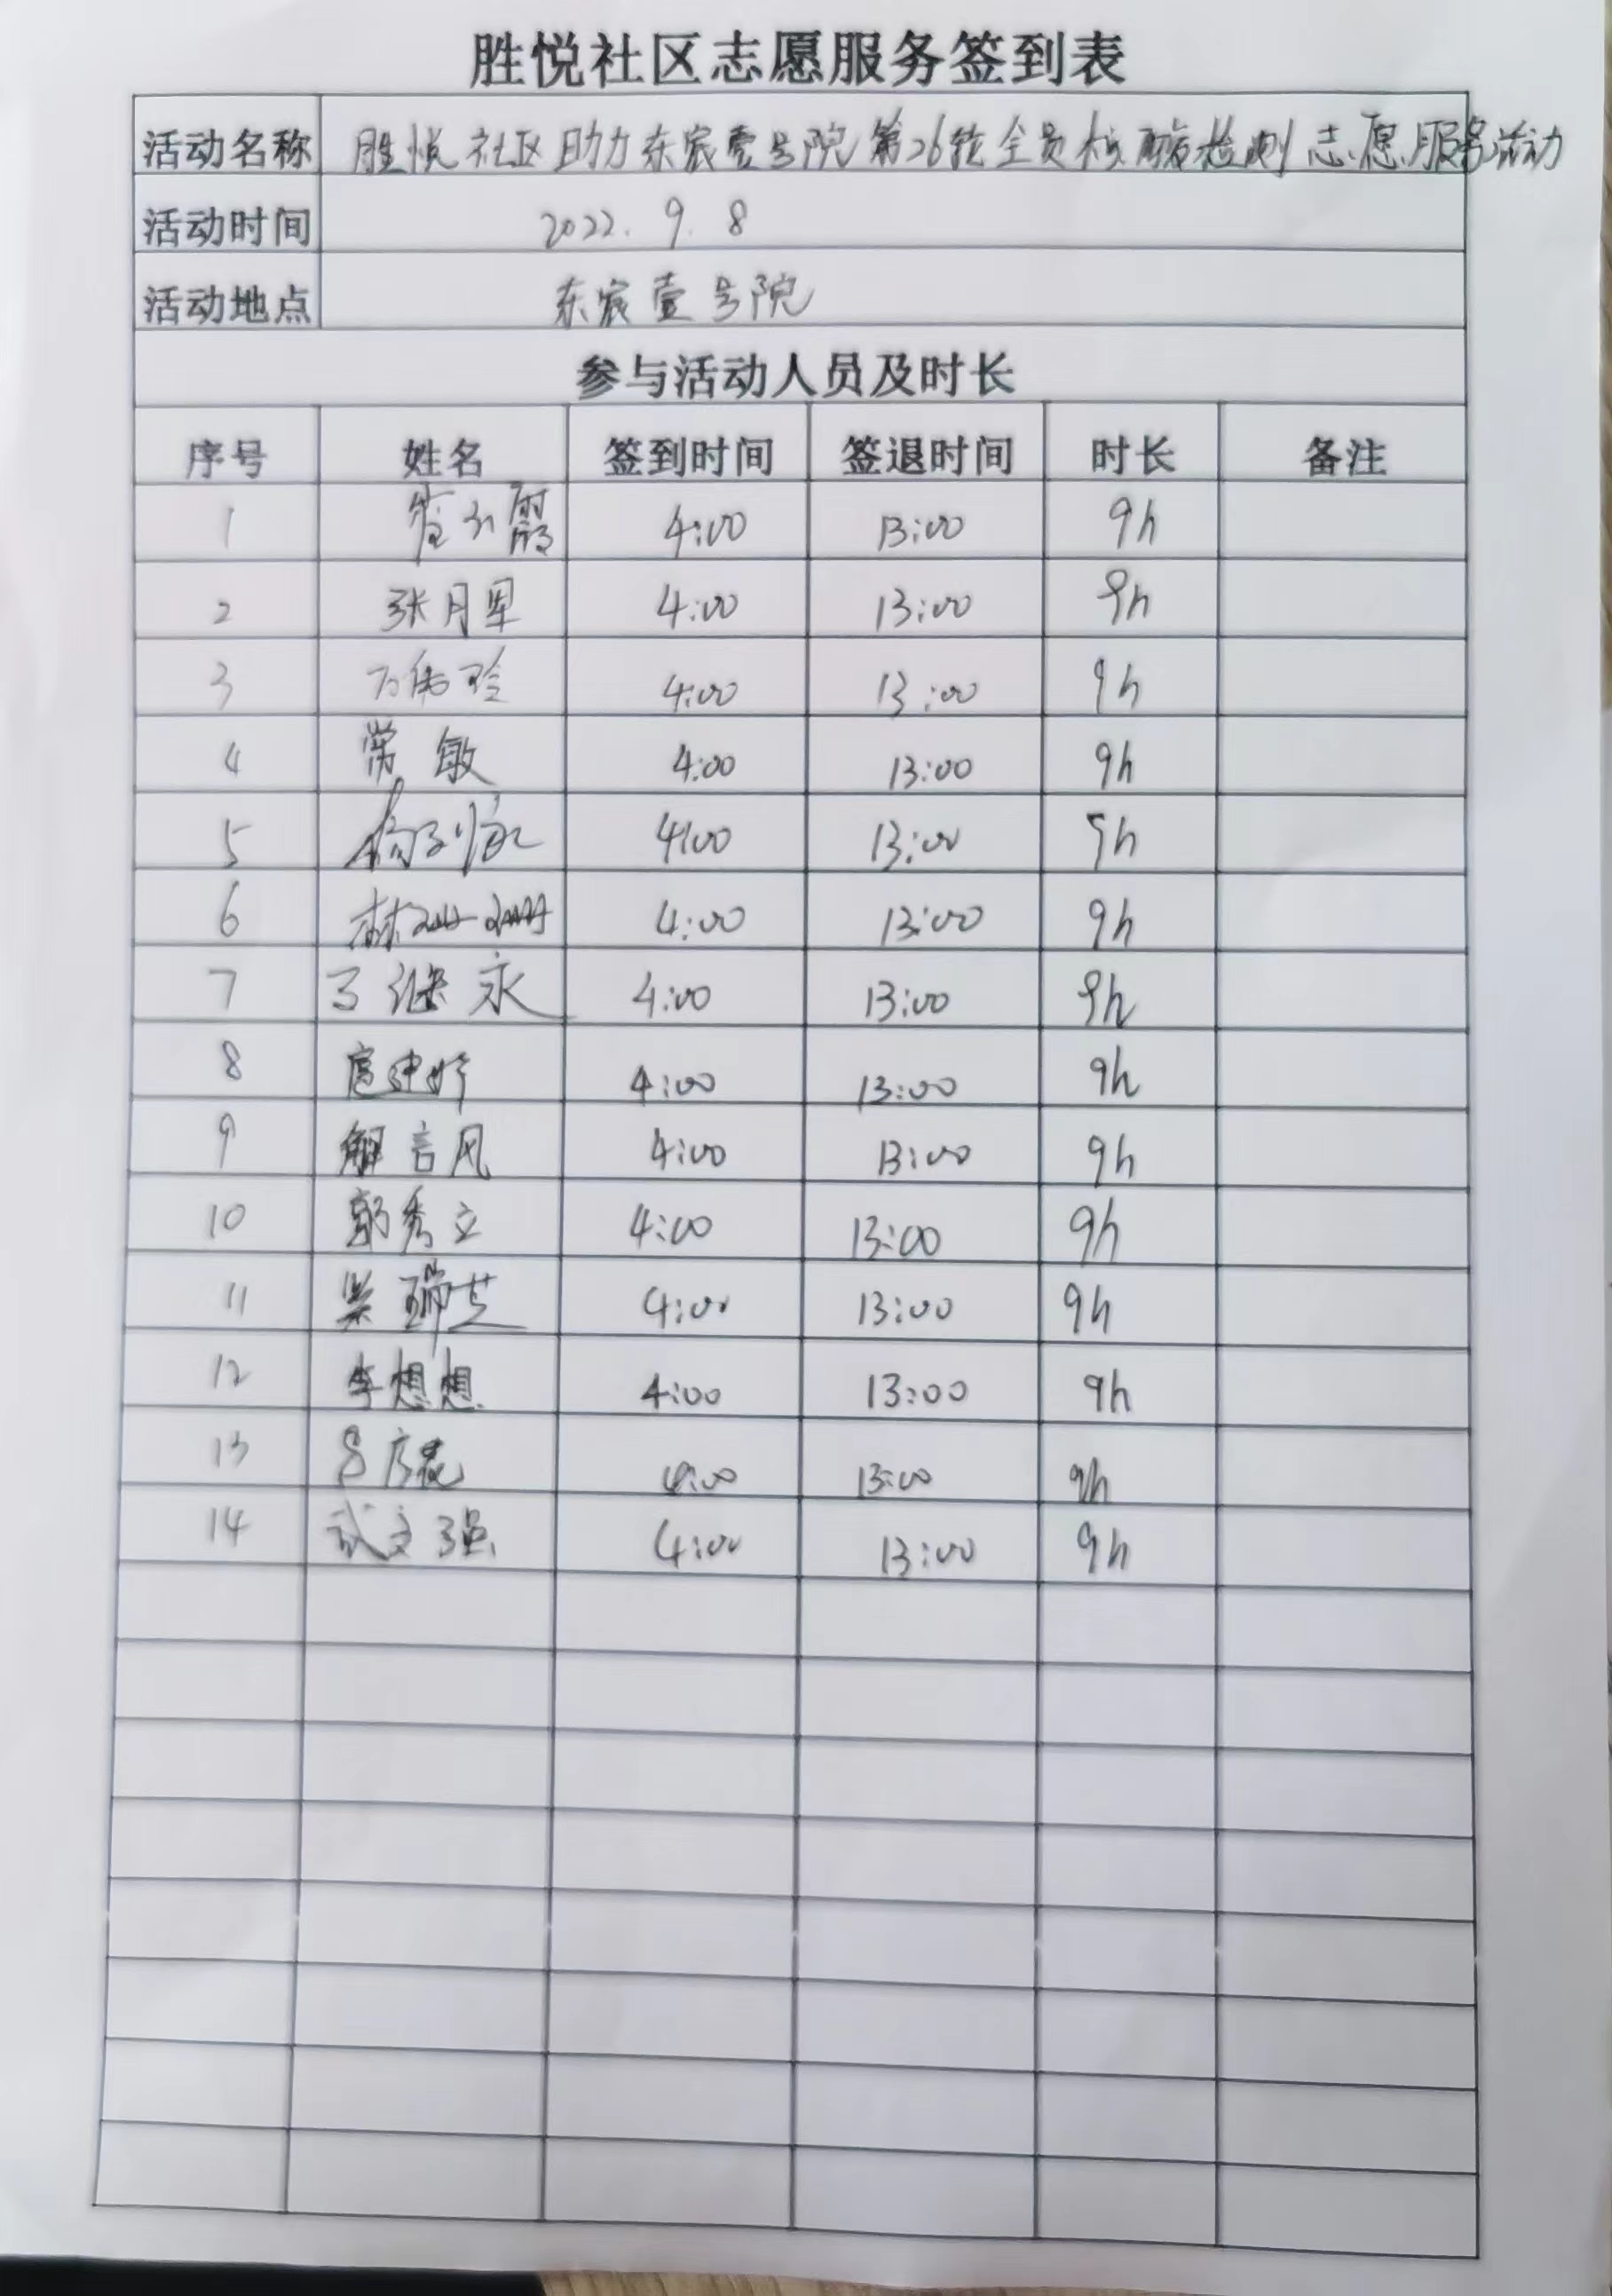 胜悦社区志愿服务签到表
活动名称 胜悦社区助力东宸壹号院第26轮全员核酸检测志愿服务活动
活动时间 2022.9.8
活动地点 东宸壹号院
参与活动人员及时长
序号 姓名 签到时间 签退时间 时长 备注
1 4:00 13:00 9h
2 张月军 4:00 13:00 9h
3 4:00 13:00 9h
4 常敏 4:00 13:00 9h
5 4:00 13:00 9h
6 林珊珊 4:00 13:00 9h
7 继永 4:00 13:00 9h
8 4:00 13:00 9h
9 解言风 4:00 13:00 9h
10 郭秀立 4:00 13:00 9h
11 吴瑞芝 4:00 13:00 9h
12 李想想 4:00 13:00 9h
13 4:00 13:00 9h
14 武文强 4:00 13:00 9h